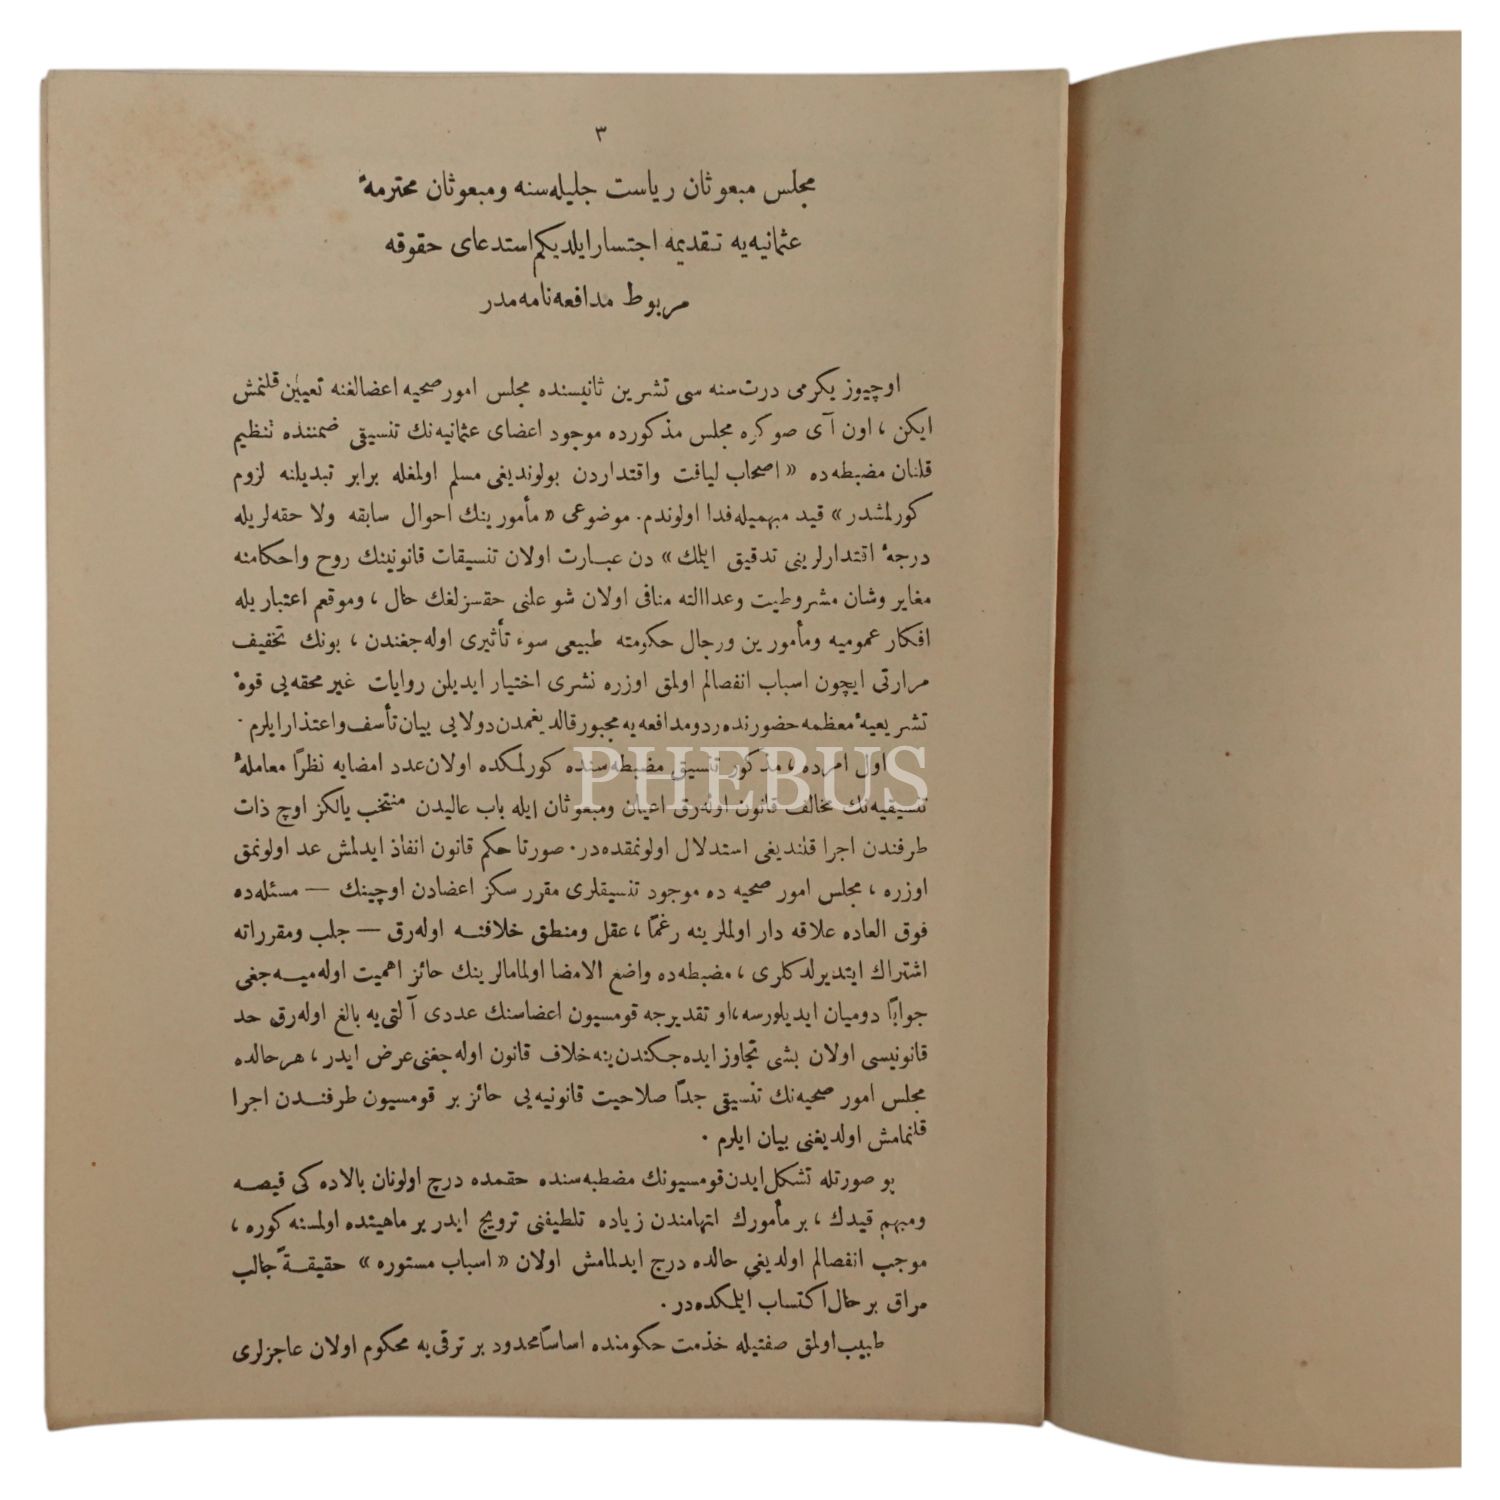 ٣
مجلس مبعوثان ریاست جلیله‌سنه ومبعوثان محترمهٔ
عثمانیه‌یه تقدیمه اجتسار ایلدیکم استدعای حقوقه
مربوط مدافعه‌نامه‌مدر
اوچیوز یکرمی درت سنه سی تشرین ثانیسنده مجلس امور صحیه اعضالغنه تعیین قلنمش
ایکن ، اون آی صوکره مجلس مذکورده موجود اعضای عثمانیه‌نك تنسیقی ضمننده تنظیم
قلنان مضبطه‌ده « اصحاب لیاقت واقتداردن بولوندیغی مسلم اولمغله برابر تبدیلنه لزوم
کورلمشدر » قید مبهمیله فدا اولوندم. موضوعی « مأمورینك احوال سابقه ولاحقه‌لریله
درجهٔ اقتدارلرینی تدقیق ایلمك » دن عبارت اولان تنسیقات قانونینك روح واحکامنه
مغایر وشان مشروطیت وعدالته منافی اولان شو علنی حقسزلغك حال ، وموقعم اعتباریله
افکار عمومیه ومأمورین ورجال حکومته طبیعی سوء تأثیری اوله‌جغندن ، بونك تخفیف
مرارتی ایچون اسباب انفصالم اولمق اوزره نشری اختیار ایدیلن روایات غیر محقه‌یی قوهٔ
تشریعیهٔ معظمه حضورنده ردومدافعه‌یه مجبور قالدیغمدن دولایی بیان تأسف واعتذار ایلرم .
اول امرده ، مذکور تنسیق مضبطه‌سنده کورلمکده اولان عدد امضایه نظرًا معاملهٔ
تنسیقیه‌نك مخالف قانون اوله‌رق اعیان ومبعوثان ایله باب عالیدن منتخب یالکز اوچ ذات
طرفندن اجرا قلندیغی استدلال اولونمقده‌در. صورتا حکم قانون انفاذ ایدلمش عد اولونمق
اوزره ، مجلس امور صحیه ده موجود تنسیقلری مقرر سکز اعضادن اوچینك — مسئله‌ده
فوق العاده علاقه دار اولملرینه رغمًا ، عقل ومنطق خلافنه اوله‌رق — جلب ومقرراته
اشتراك ایتدیرلدکلری ، مضبطه‌ده واضع الامضا اولمامالرینك حائز اهمیت اوله‌میه‌جغی
جوابًا دومیان ایدیلورسه ، او تقدیرجه قومسیون اعضاسنك عددی آلتی‌یه بالغ اوله‌رق حد
قانونیسی اولان بشی تجاوز ایده‌جکندن ینه خلاف قانون اوله‌جغنی عرض ایدر ، هر حالده
مجلس امور صحیه‌نك تنسیقی جدًا صلاحیت قانونیه‌یی حائز بر قومسیون طرفندن اجرا
قلنمامش اولدیغنی بیان ایلرم .
بو صورتله تشکل ایدن قومسیونك مضطبه‌سنده حقمده درج اولونان بالاده کی قیصه
ومبهم قیدك ، بر مأمورك اتهامندن زیاده تلطیفنی ترویج ایدر بر ماهیتده اولمسنه کوره ،
موجب انفصالم اولدیغی حالده درج ایدلمامش اولان « اسباب مستوره » حقیقةً جالب
مراق بر حال اکتساب ایلمکده‌در .
طبیب اولمق صفتیله خذمت حکومنده اساسًا محدود بر ترقی‌یه محکوم اولان عاجزلری
PHEBUS